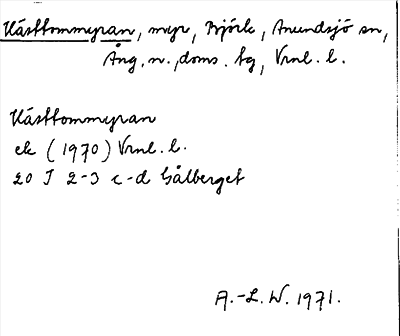 Västtommyran, myr, Björk, Anundsjö sn,
Ång. n. doms. tg, Vrnl. l.
Västtommyran
ek (1970) Vrnl. l.
20 J 2-3 c-d Gålberget
A.-L. W. 1971.